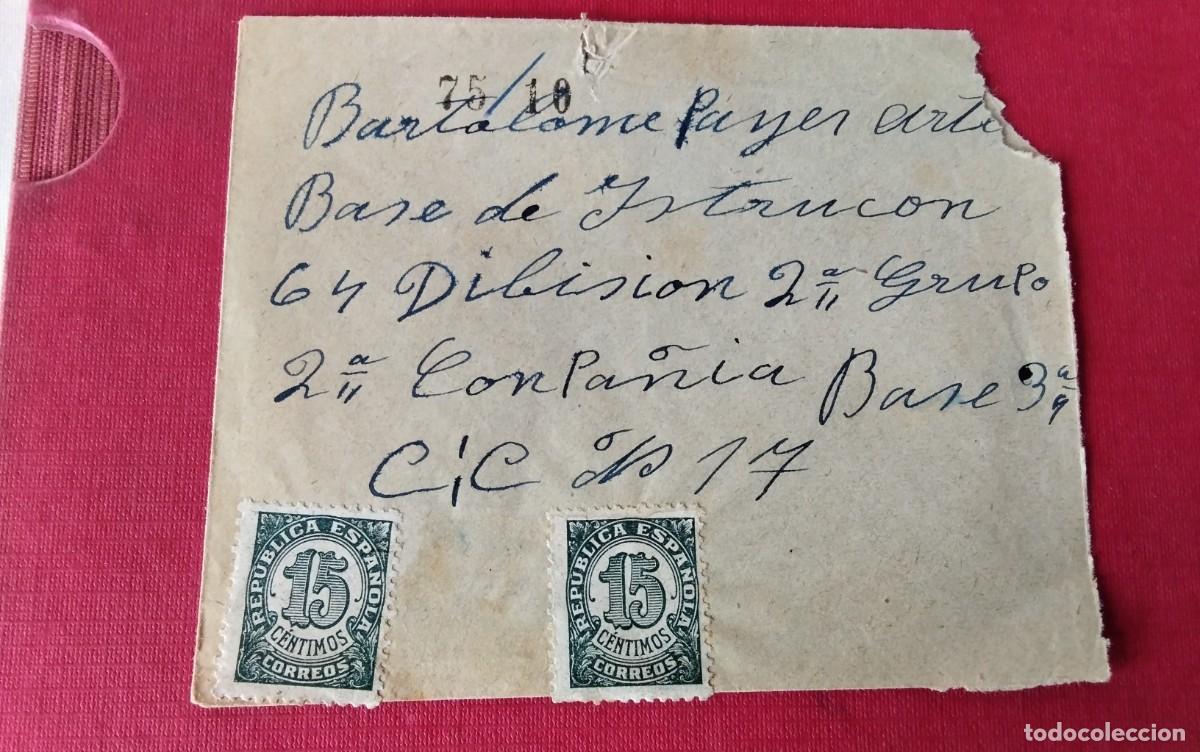 75/10
Bartolome Payer arti
Base de Istrucon
64 Dibision 2ª Grupo
2ª Conpañia Base 3ª
C,C Nº 17
REPUBLICA ESPAÑOLA
15
CÉNTIMOS
CORREOS
REPUBLICA ESPAÑOLA
15
CÉNTIMOS
CORREOS
todocoleccion